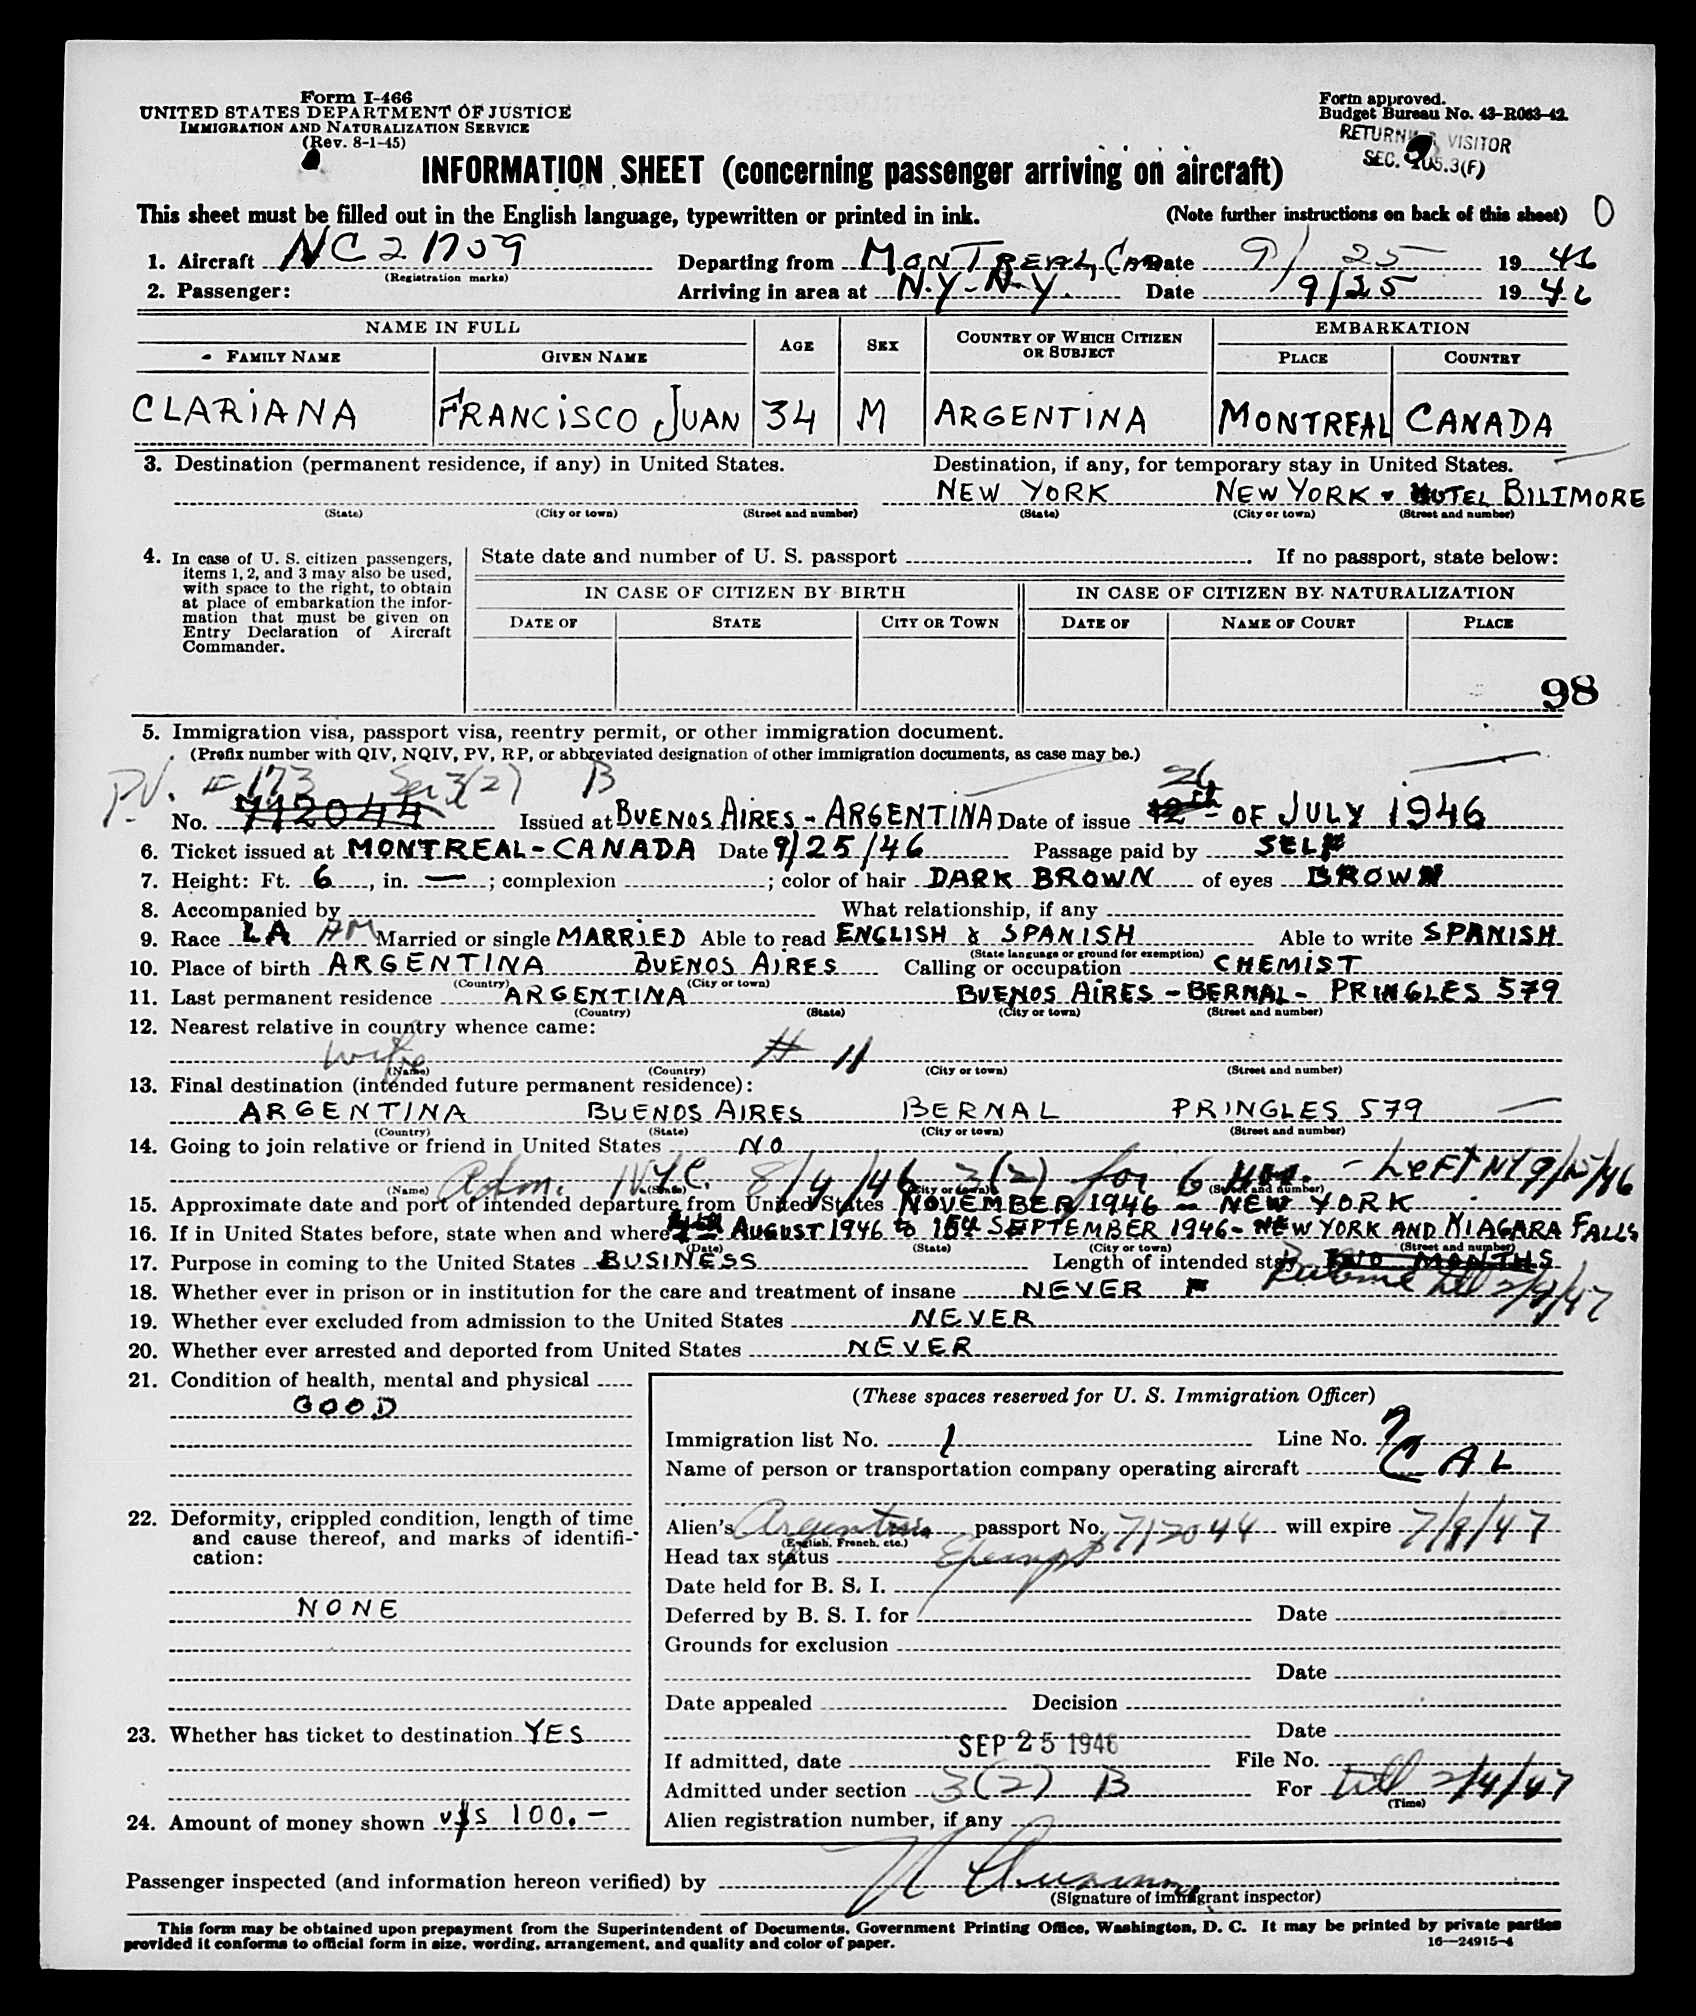 Form I-466
UNITED STATES DEPARTMENT OF JUSTICE
IMMIGRATION AND NATURALIZATION SERVICE
(Rev. 8-1-45)
Form approved.
Budget Bureau No. 43-R063-42.
VISITOR
SEC. 3(F)
INFORMATION SHEET (concerning passenger arriving on aircraft)
This sheet must be filled out in the English language, typewritten or printed in ink. (Note further instructions on back of this sheet) 0
1. Aircraft NC 21709 Departing from MONTREAL, CAN Date 9/25 1946
(Registration marks)
2. Passenger: Arriving in area at N.Y-N.Y. Date 9/25 1946
NAME IN FULL AGE SEX COUNTRY OF WHICH CITIZEN OR SUBJECT EMBARKATION
FAMILY NAME GIVEN NAME PLACE COUNTRY
CLARIANA FRANCISCO JUAN 34 M ARGENTINA MONTREAL CANADA
3. Destination (permanent residence, if any) in United States. Destination, if any, for temporary stay in United States.
NEW YORK NEW YORK - HOTEL BILTMORE
(State) (City or town) (Street and number) (State) (City or town) (Street and number)
4. In case of U. S. citizen passengers, items 1, 2, and 3 may also be used, with space to the right, to obtain at place of embarkation the information that must be given on Entry Declaration of Aircraft Commander.
State date and number of U. S. passport If no passport, state below:
IN CASE OF CITIZEN BY BIRTH IN CASE OF CITIZEN BY NATURALIZATION
DATE OF STATE CITY OR TOWN DATE OF NAME OF COURT PLACE
98
5. Immigration visa, passport visa, reentry permit, or other immigration document.
(Prefix number with QIV, NQIV, PV, RP, or abbreviated designation of other immigration documents, as case may be.)
P.V. # 173 Sec 3(2) B 26
No. 712044 Issued at BUENOS AIRES - ARGENTINA Date of issue 12th - OF JULY 1946
6. Ticket issued at MONTREAL - CANADA Date 9/25/46 Passage paid by SELF
7. Height: Ft. 6, in. —; complexion ; color of hair DARK BROWN of eyes BROWN
8. Accompanied by What relationship, if any
9. Race LA AM Married or single MARRIED Able to read ENGLISH & SPANISH Able to write SPANISH
(State language or ground for exemption)
10. Place of birth ARGENTINA BUENOS AIRES Calling or occupation CHEMIST
(Country) (City or town)
11. Last permanent residence ARGENTINA BUENOS AIRES - BERNAL - PRINGLES 579
(Country) (State) (City or town) (Street and number)
12. Nearest relative in country whence came:
Wife # 11
(Name) (Country) (City or town) (Street and number)
13. Final destination (intended future permanent residence):
ARGENTINA BUENOS AIRES BERNAL PRINGLES 579
(Country) (State) (City or town) (Street and number)
14. Going to join relative or friend in United States NO
Adm. N.Y.C. 8/4/46 3(2) for 6 - LEFT NY 9/15/46
(Name) (State) (City or town) (Street and number)
15. Approximate date and port of intended departure from United States NOVEMBER 1946 - NEW YORK
16. If in United States before, state when and where AUGUST 1946 to 15th SEPTEMBER 1946 - NEW YORK AND NIAGARA FALLS
(Date) (State) (City or town) (Street and number)
17. Purpose in coming to the United States BUSINESS Length of intended stay TWO MONTHS
till 2/4/47
18. Whether ever in prison or in institution for the care and treatment of insane NEVER
19. Whether ever excluded from admission to the United States NEVER
20. Whether ever arrested and deported from United States NEVER
21. Condition of health, mental and physical
GOOD
22. Deformity, crippled condition, length of time and cause thereof, and marks of identification:
NONE
23. Whether has ticket to destination YES
24. Amount of money shown u$s 100.-
(These spaces reserved for U. S. Immigration Officer)
Immigration list No. 1 Line No. 7
Name of person or transportation company operating aircraft CAL
Alien's Argentina passport No. 712044 will expire 7/9/47
(English, French, etc.)
Head tax status Exempt
Date held for B. S. I.
Deferred by B. S. I. for Date
Grounds for exclusion
Date
Date appealed Decision
Date
If admitted, date SEP 25 1946 File No.
Admitted under section 3(2) B For till 2/4/47
(Time)
Alien registration number, if any
Passenger inspected (and information hereon verified) by
(Signature of immigrant inspector)
This form may be obtained upon prepayment from the Superintendent of Documents, Government Printing Office, Washington, D. C. It may be printed by private parties
provided it conforms to official form in size, wording, arrangement, and quality and color of paper.
16—24915-4